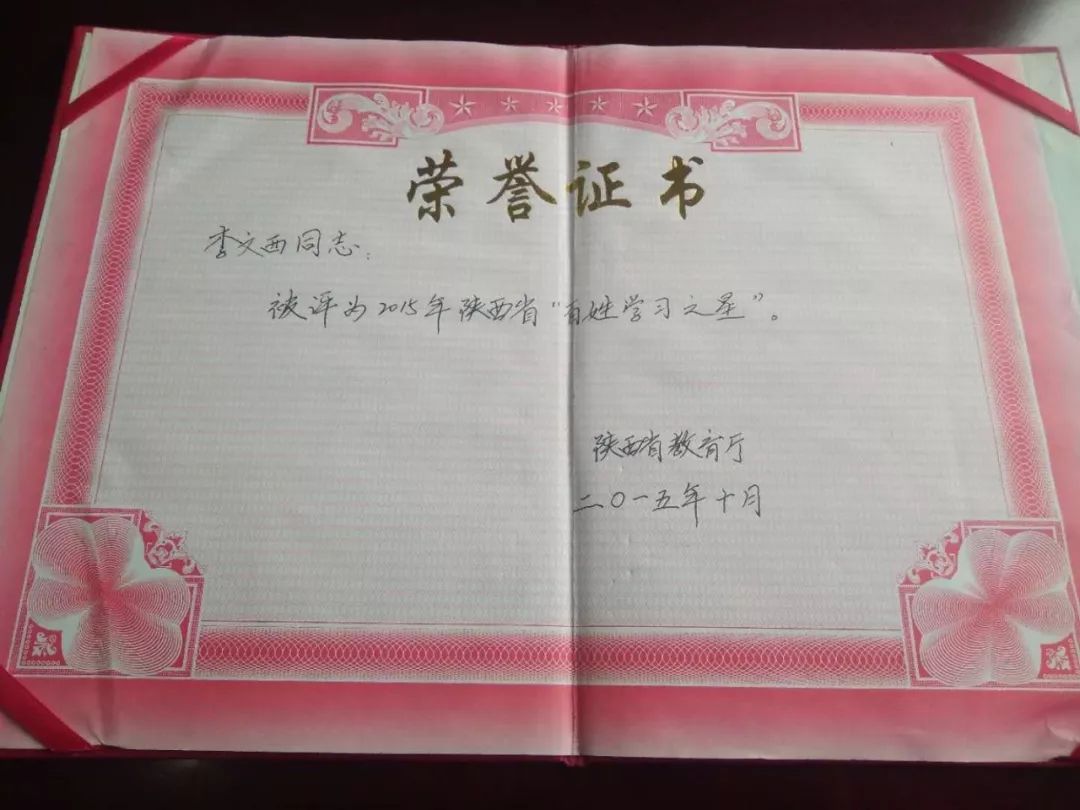 荣誉证书
李文西同志：
被评为2015年陕西省“百姓学习之星”。
陕西省教育厅
二〇一五年十月